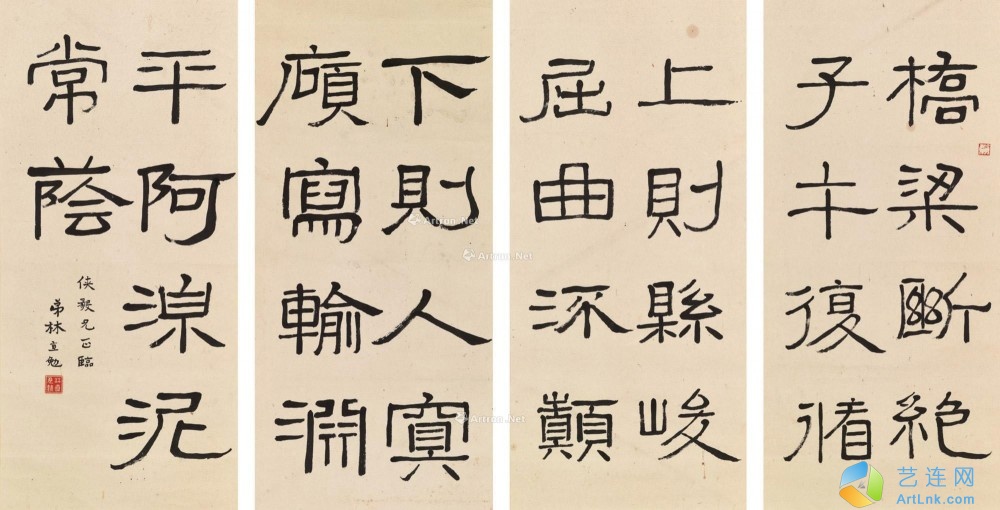 橋梁斷絶
子午復循
上則縣峻
屈曲流顛
下則入冥
廎寫輸淵
平阿湶泥
常蔭
俠毅兄正臨
弟林直勉
Artron.Net
Artron.Net
Artron.Net
艺连网
ArtLnk.com